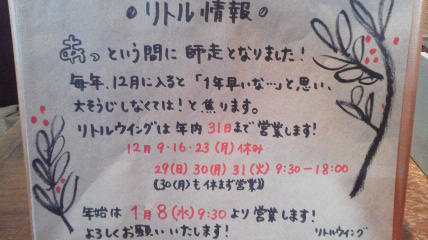 ●リトル情報●
あっという間に師走となりました！
毎年、12月に入ると「1年早いな…」と思い、
大そうじしなくては！と焦ります。
リトルウイングは年内31日まで営業します！
12月 9・16・23（月）休み
29（日）30（月）31（火）9:30－18:00
（30（月）も休まず営業）
年始は 1月8（水）9:30より営業します！
よろしくお願いいたします！
リトルウイング